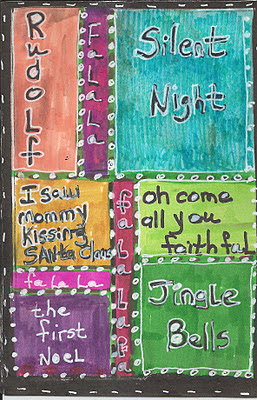 Rudolf
FaLaLa
Silent
Night
I saw
mommy
Kissing
SANta Claus
oh come
all you
faithful
faLaLaLa
fa La La
the
first
NoeL
Jingle
Bells